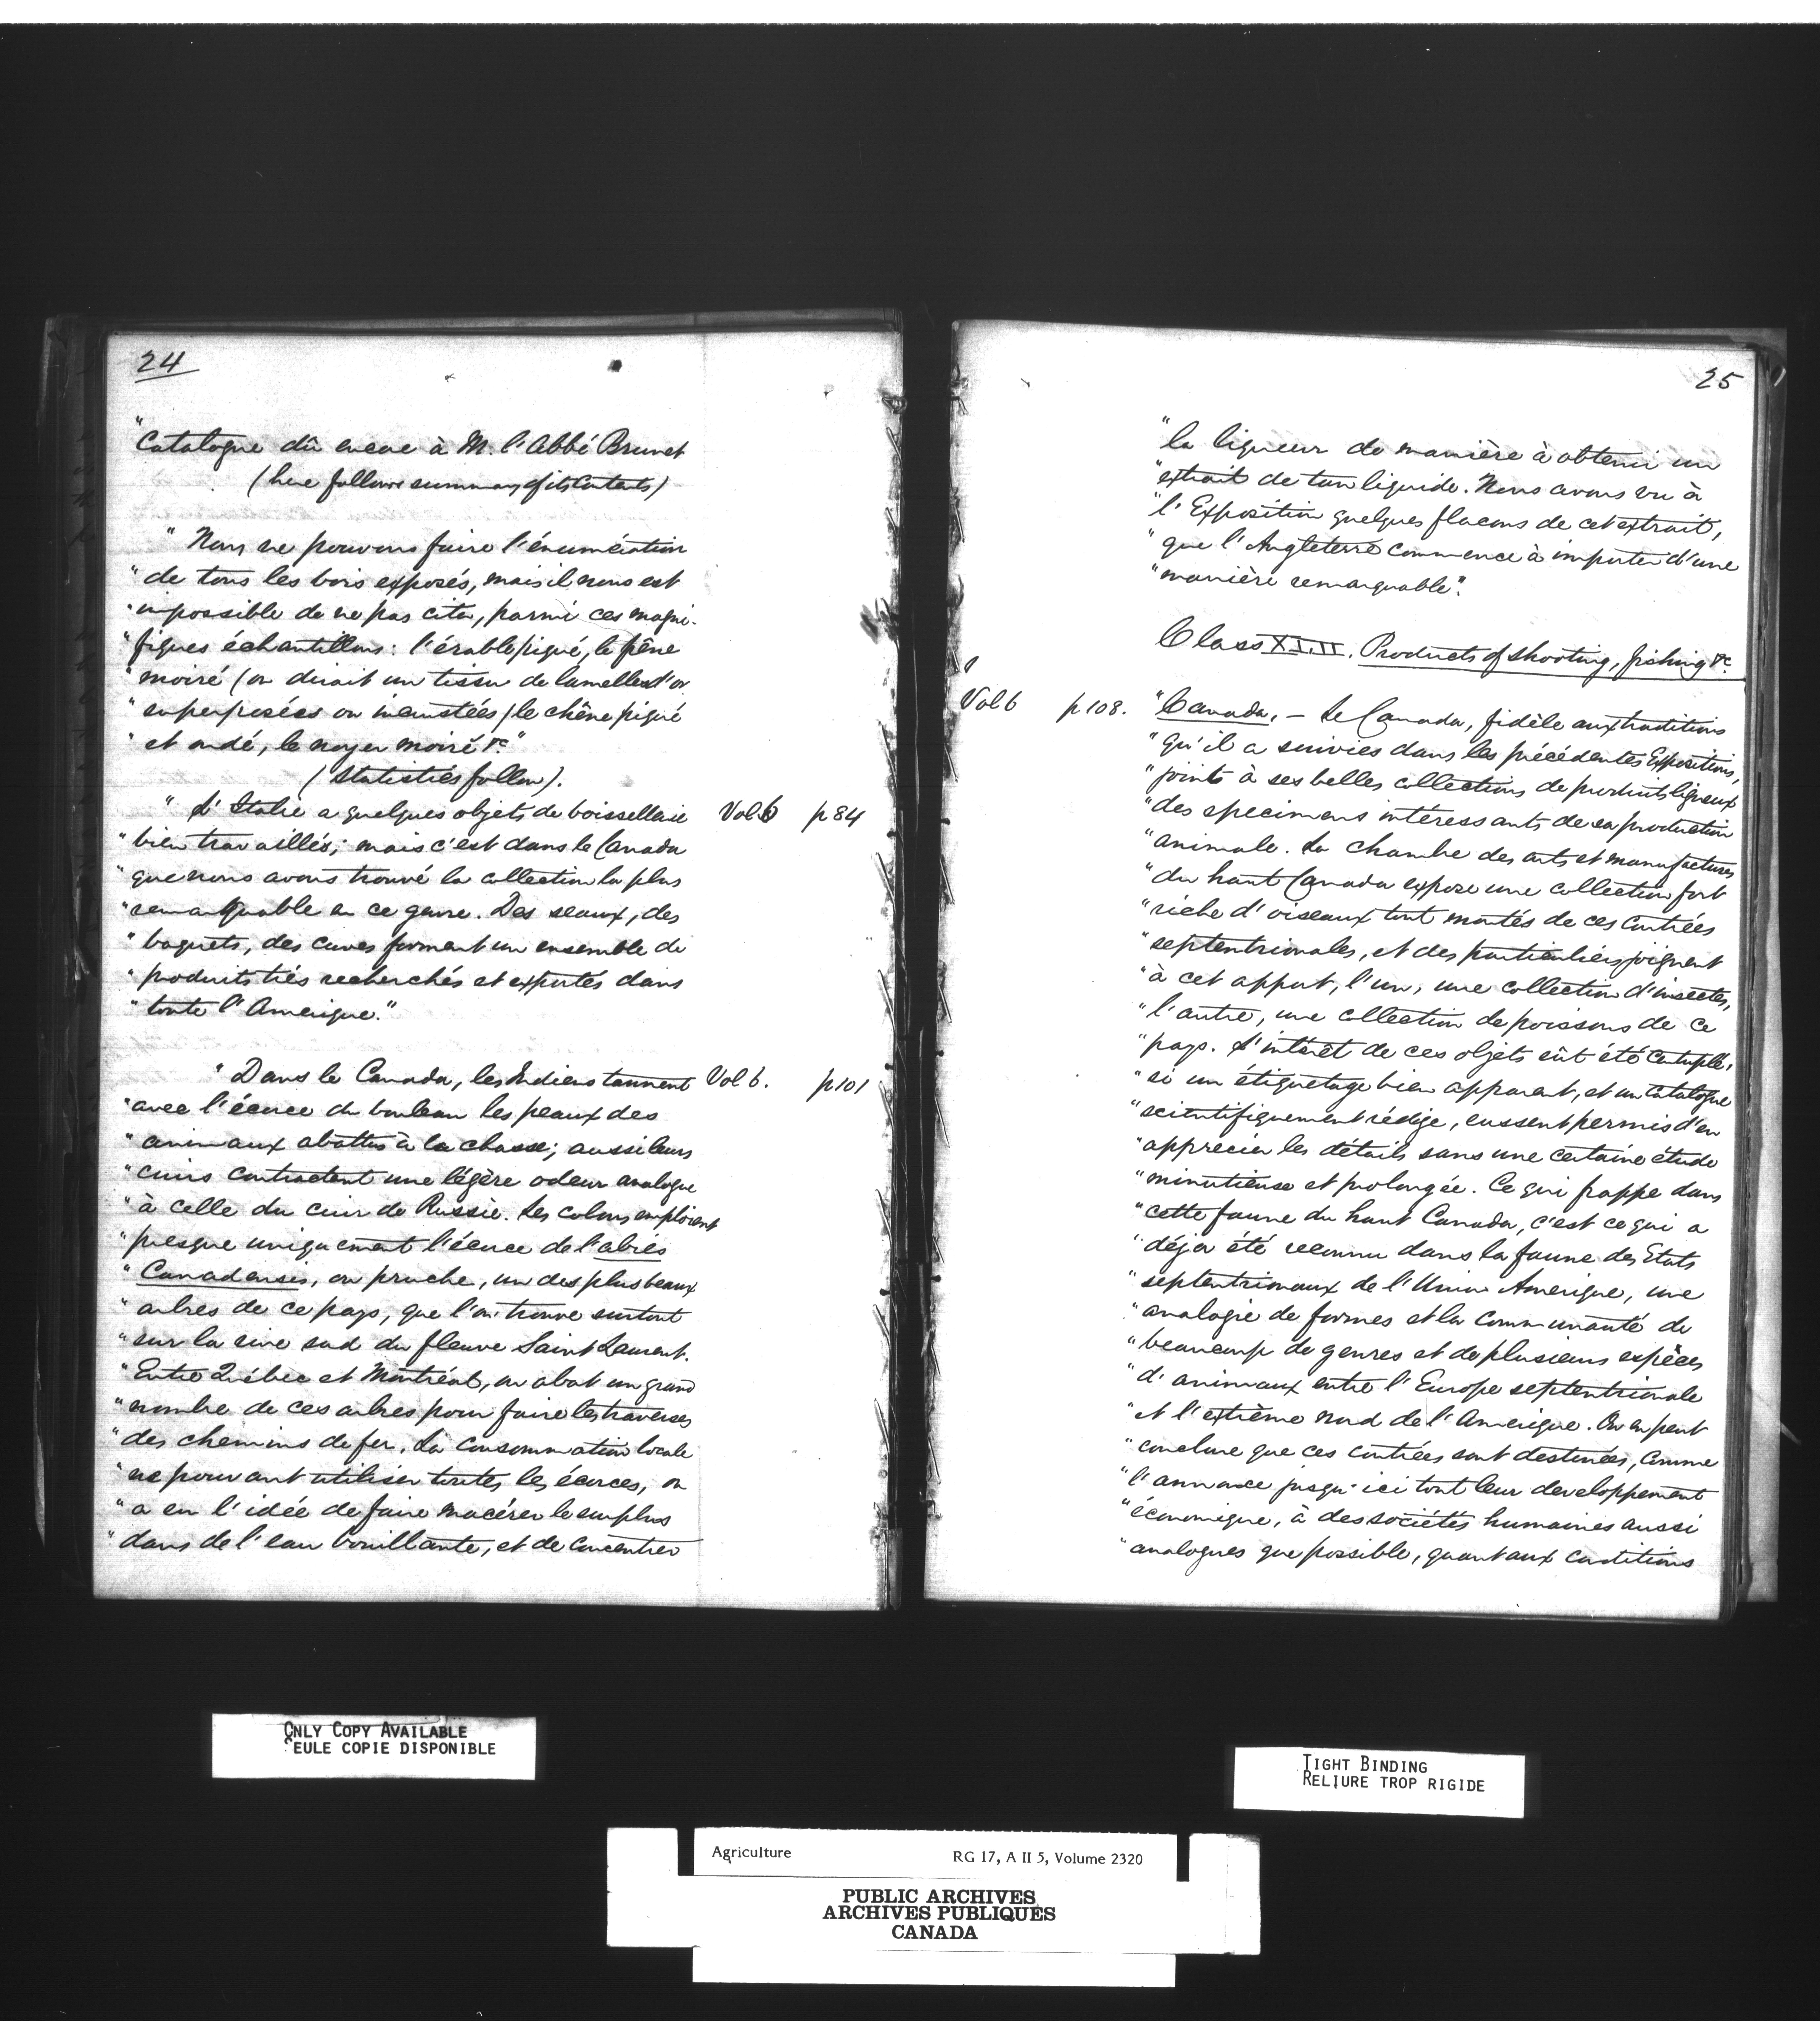 24
"Catalogue dû encore à M. l'Abbé Brunet
(here follows summary of its Contents)
"Nous ne pouvons faire l'énumération
"de tous les bois exposés, mais il nous est
"impossible de ne pas citer, parmi ces magni-
"fiques échantillons: l'érable piqué, le frêne
"moiré (on dirait un tissu de lamelles d'or
"superposées ou incrustées) le chêne piqué
"et ondé, le noyer moiré &c."
(Statistics follow).
"L'Italie a quelques objets de boissellerie Vol. 6 p 84
"bien travaillés; mais c'est dans le Canada
"que nous avons trouvé la collection la plus
"remarquable en ce genre. Des seaux, des
"baquets, des cuves forment un ensemble de
"produits très recherchés et exportés dans
"toute l'Amerique."
"Dans le Canada, les Indiens tannent Vol 6. p 101
"avec l'écorce du bouleau les peaux des
"animaux abattus à la chasse; aussi leurs
"cuirs contractent une légère odeur analogue
"à celle du cuir de Russie. Les colons emploient
"presque uniquement l'écorce de l'abies
"Canadensis, ou pruche, un des plus beaux
"arbres de ce pays, que l'on trouve surtout
"sur la rive sud du fleuve Saint Laurent.
"Entre Québec et Montréal, on abat un grand
"nombre de ces arbres pour faire les traverses
"des chemins de fer. La consommation locale
"ne pouvant utiliser toutes les écorces, on
"a eu l'idée de faire macérer le surplus
"dans de l'eau bouillante, et de concentrer
25
"la liqueur de manière à obtenir un
"extrait de tan liquide. Nous avons vu à
"l'Exposition quelques flacons de cet extrait,
"que l'Angleterre commence à importer d'une
"manière remarquable".
Class XLII. Products of shooting, fishing &c.
Vol 6 p 108. "Canada, – Le Canada, fidèle aux traditions
"qu'il a suivies dans les précédentes Expositions,
"joint à ses belles collections de produits ligneux
"des specimens intéressants de sa production
"animale. La chambre des arts et manufactures
"du haut Canada expose une collection fort
"riche d'oiseaux tout montés de ces contrées
"septentrionales, et des particuliers joignent
"à cet apport, l'un, une collection d'insectes,
"l'autre, une collection de poissons de ce
"pays. L'intérêt de ces objets eût été centuplé,
"si un étiquetage bien apparent, et un catalogue
"scientifiquement rédigé, eussent permis d'en
"apprecier les détails sans une certaine étude
"minutieuse et prolongée. Ce qui frappe dans
"cette faune du haut Canada, c'est ce qui a
"déja été reconnu dans la faune des Etats
"septentrionaux de l'Union Amerique, une
"analogie de formes et la communauté de
"beaucoup de genres et de plusieurs espèces
"d'animaux entre l'Europe septentrionale
"et l'extrème nord de l'Amerique. On en peut
"conclure que ces contrées sont destinées, comme
"l'annonce jusqu'ici tout leur developpement
"économique, à des sociétés humaines aussi
"analogues que possible, quant aux conditions
ONLY COPY AVAILABLE
SEULE COPIE DISPONIBLE
TIGHT BINDING
RELIURE TROP RIGIDE
Agriculture RG 17, A II 5, Volume 2320
PUBLIC ARCHIVES
ARCHIVES PUBLIQUES
CANADA